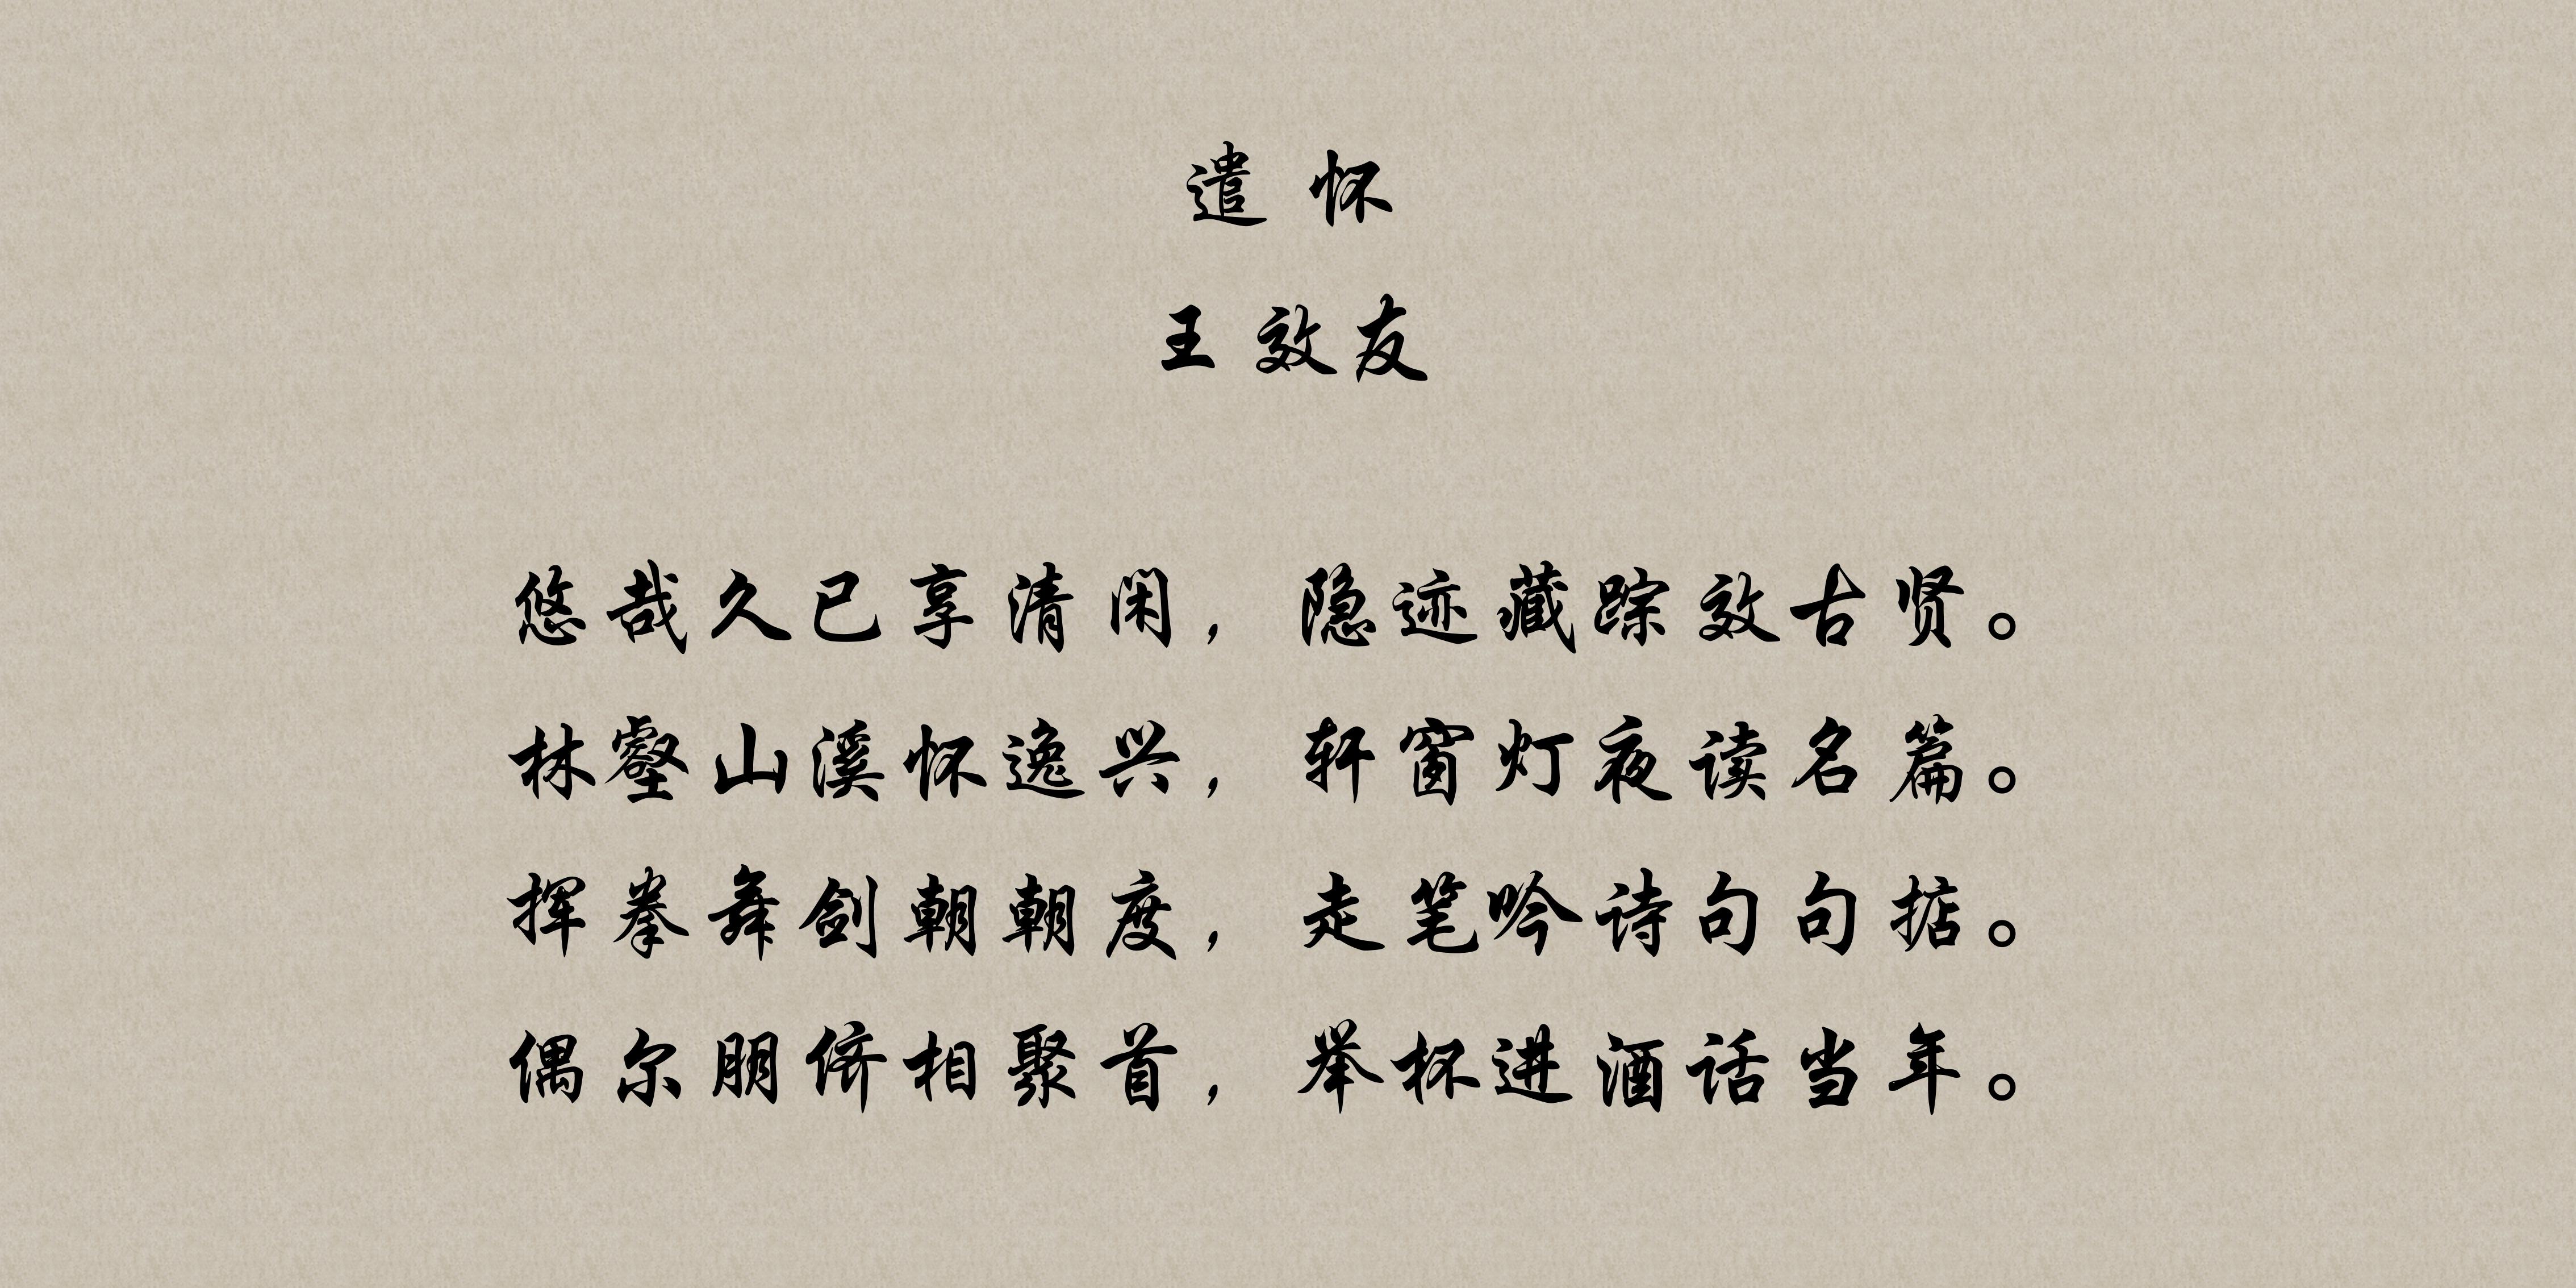 遣怀
王效友
悠哉久已享清闲，隐迹藏踪效古贤。
林壑山溪怀逸兴，轩窗灯夜读名篇。
挥拳舞剑朝朝度，走笔吟诗句句掂。
偶尔朋侪相聚首，举杯进酒话当年。